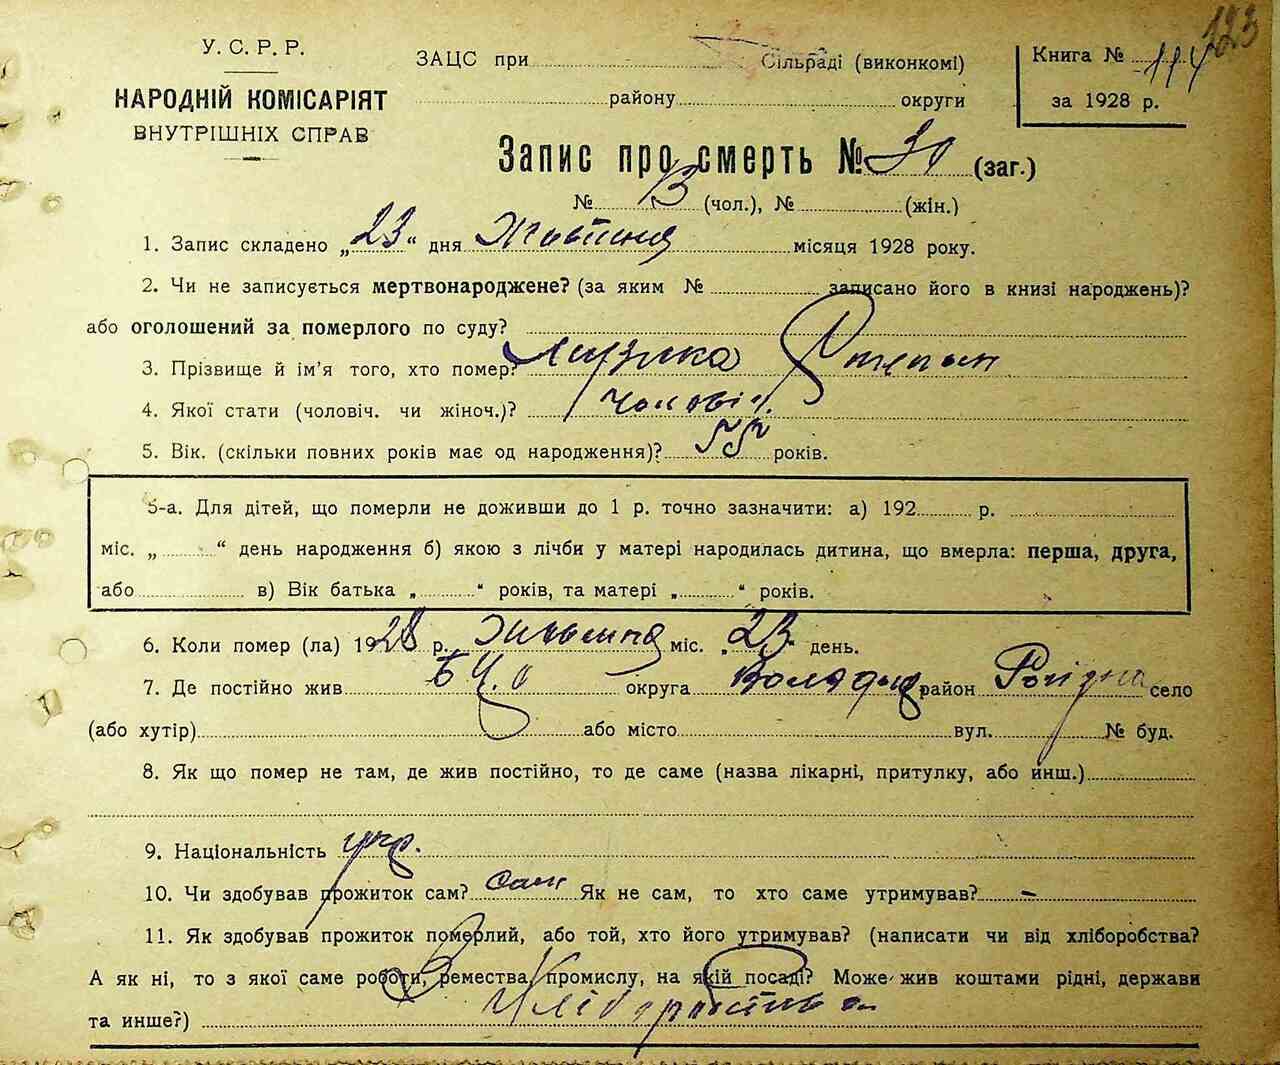 123
У. С. Р. Р. ЗАЦС при Сільраді (виконкомі) Книга № 114
НАРОДНІЙ КОМІСАРІЯТ району округи за 1928 р.
ВНУТРІШНІХ СПРАВ
Запис про смерть № (заг.)
№ 13 (чол.), № (жін.)
1. Запис складено „23“ дня Жовтня місяця 1928 року.
2. Чи не записується мертвонароджене? (за яким № записано його в книзі народжень)?
або оголошений за померлого по суду?
3. Прізвище й ім'я того, хто помер? Музика Степан
4. Якої стати (чоловіч. чи жіноч.)? чоловіч.
5. Вік. (скільки повних років має од народження)? 55 років.
5-а. Для дітей, що померли не доживши до 1 р. точно зазначити: а) 192 р.
міс. „ “ день народження б) якою з лічби у матері народилась дитина, що вмерла: перша, друга,
або в) Вік батька „ “ років, та матері „ “ років.
6. Коли помер (ла) 1928 р. Жовтня міс. „23“ день.
7. Де постійно жив Б Ц. О округа район село
(або хутір) або місто вул. № буд.
8. Як що помер не там, де жив постійно, то де саме (назва лікарні, притулку, або инш.)
9. Національність укр.
10. Чи здобував прожиток сам? сам Як не сам, то хто саме утримував? –
11. Як здобував прожиток померлий, або той, хто його утримував? (написати чи від хліборобства?
А як ні, то з якої саме роботи, ремества, промислу, на якій посаді? Може жив коштами рідні, держави
та инше?)